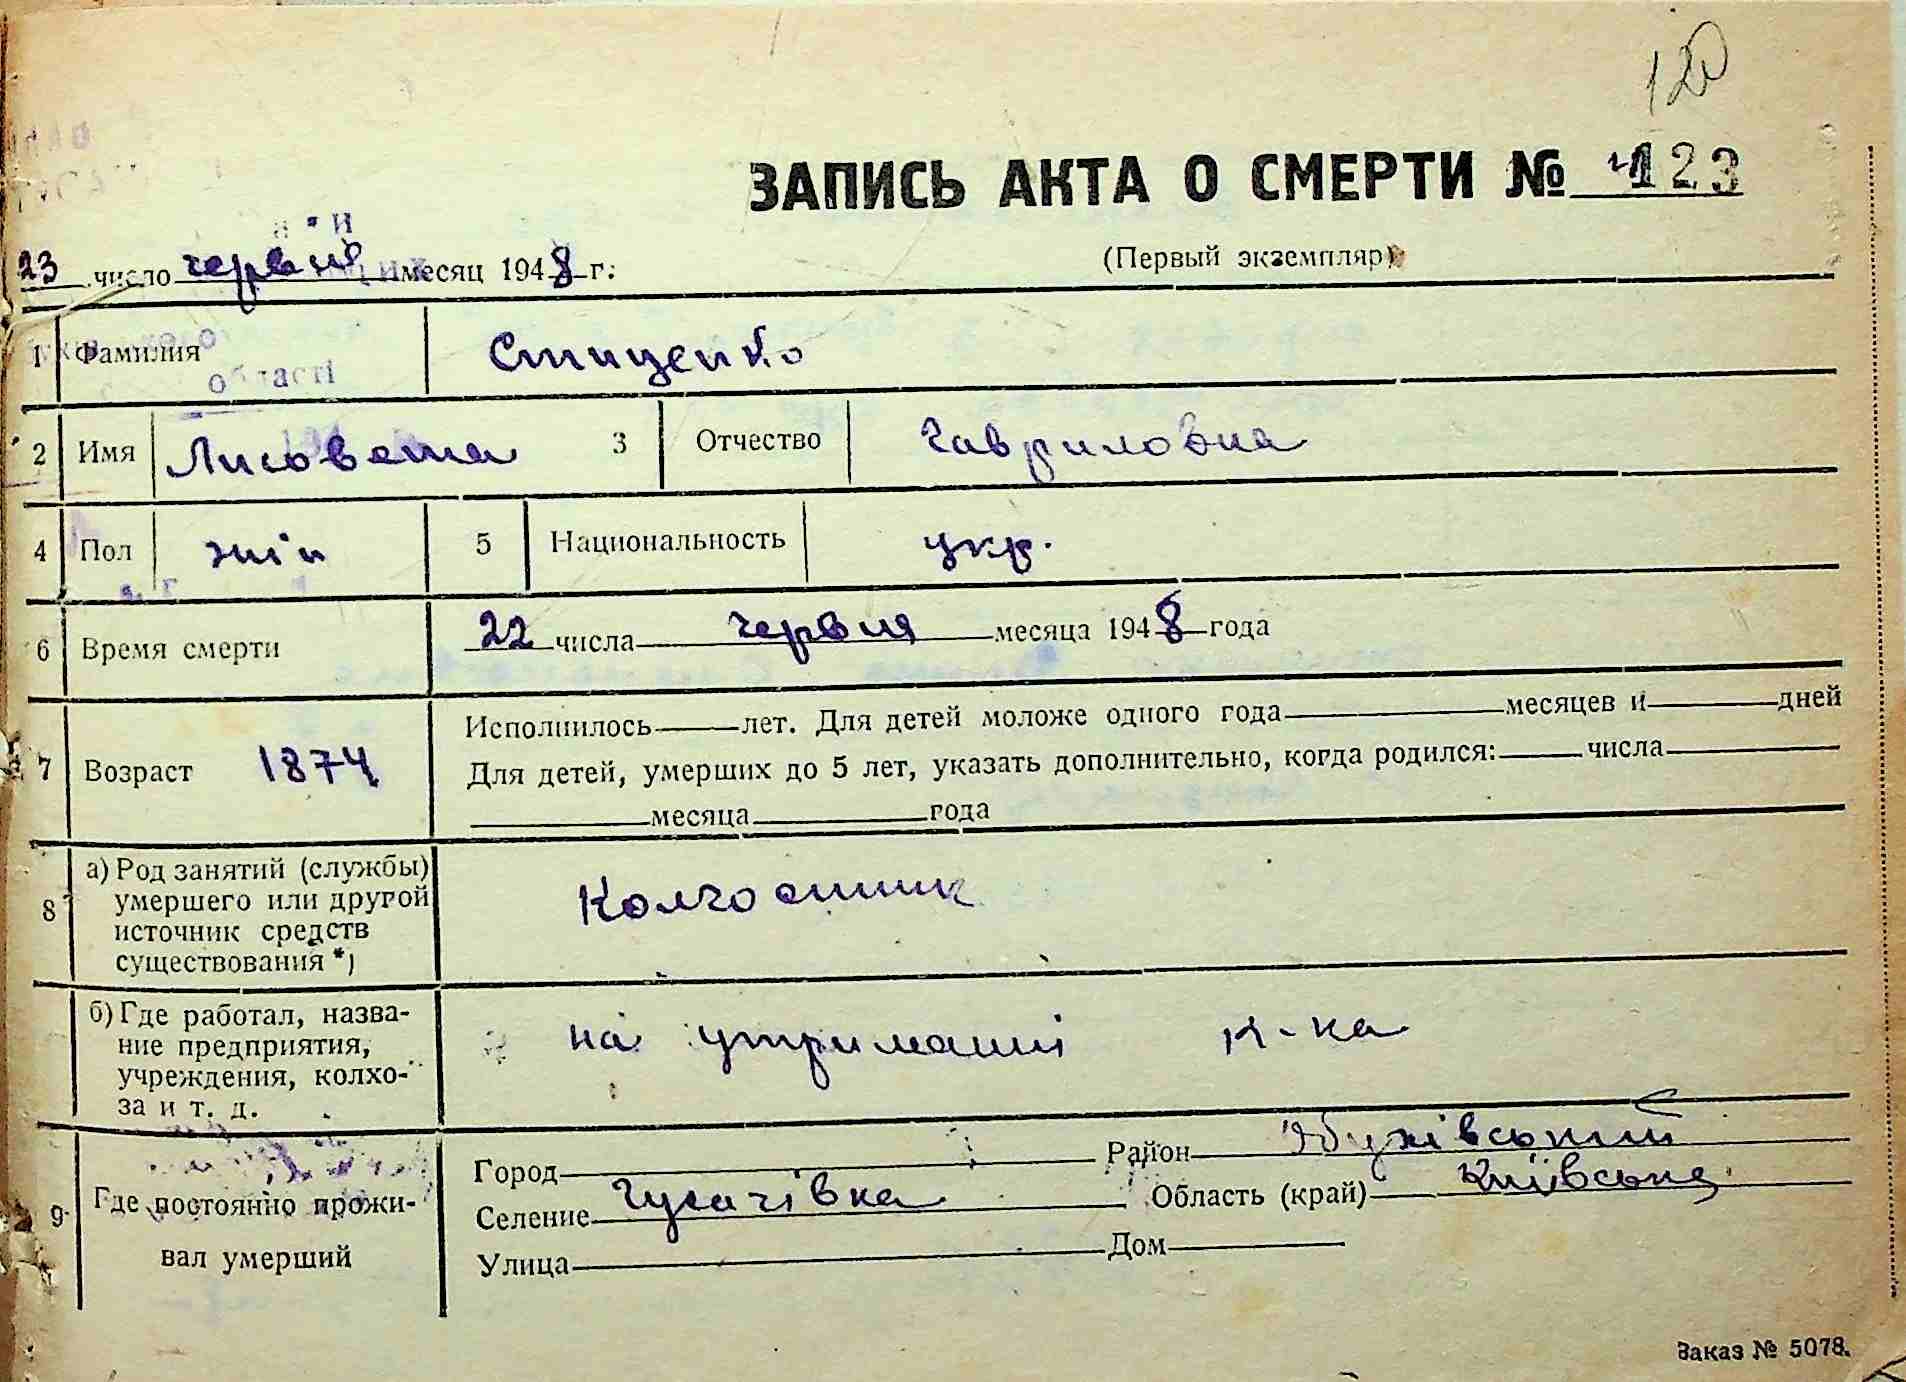 120
ЗАПИСЬ АКТА О СМЕРТИ № 123
23 число червня месяц 1948 г.
(Первый экземпляр)
1 Фамилия Стиценко
області
2 Имя Лисовета 3 Отчество Гавриловна
4 Пол жін 5 Национальность укр.
6 Время смерти 22 числа червня месяца 1948 года
7 Возраст 1874 Исполнилось лет. Для детей моложе одного года месяцев и дней
Для детей, умерших до 5 лет, указать дополнительно, когда родился: числа
месяца года
8 а) Род занятий (службы) умершего или другой источник средств существования *) Колгоспник
б) Где работал, название предприятия, учреждения, колхоза и т. д. на утриманні к-ка
9 Где постоянно проживал умерший
Город Район Обухівський
Селение Гусачівка Область (край) Київська
Улица Дом
Заказ № 5078.